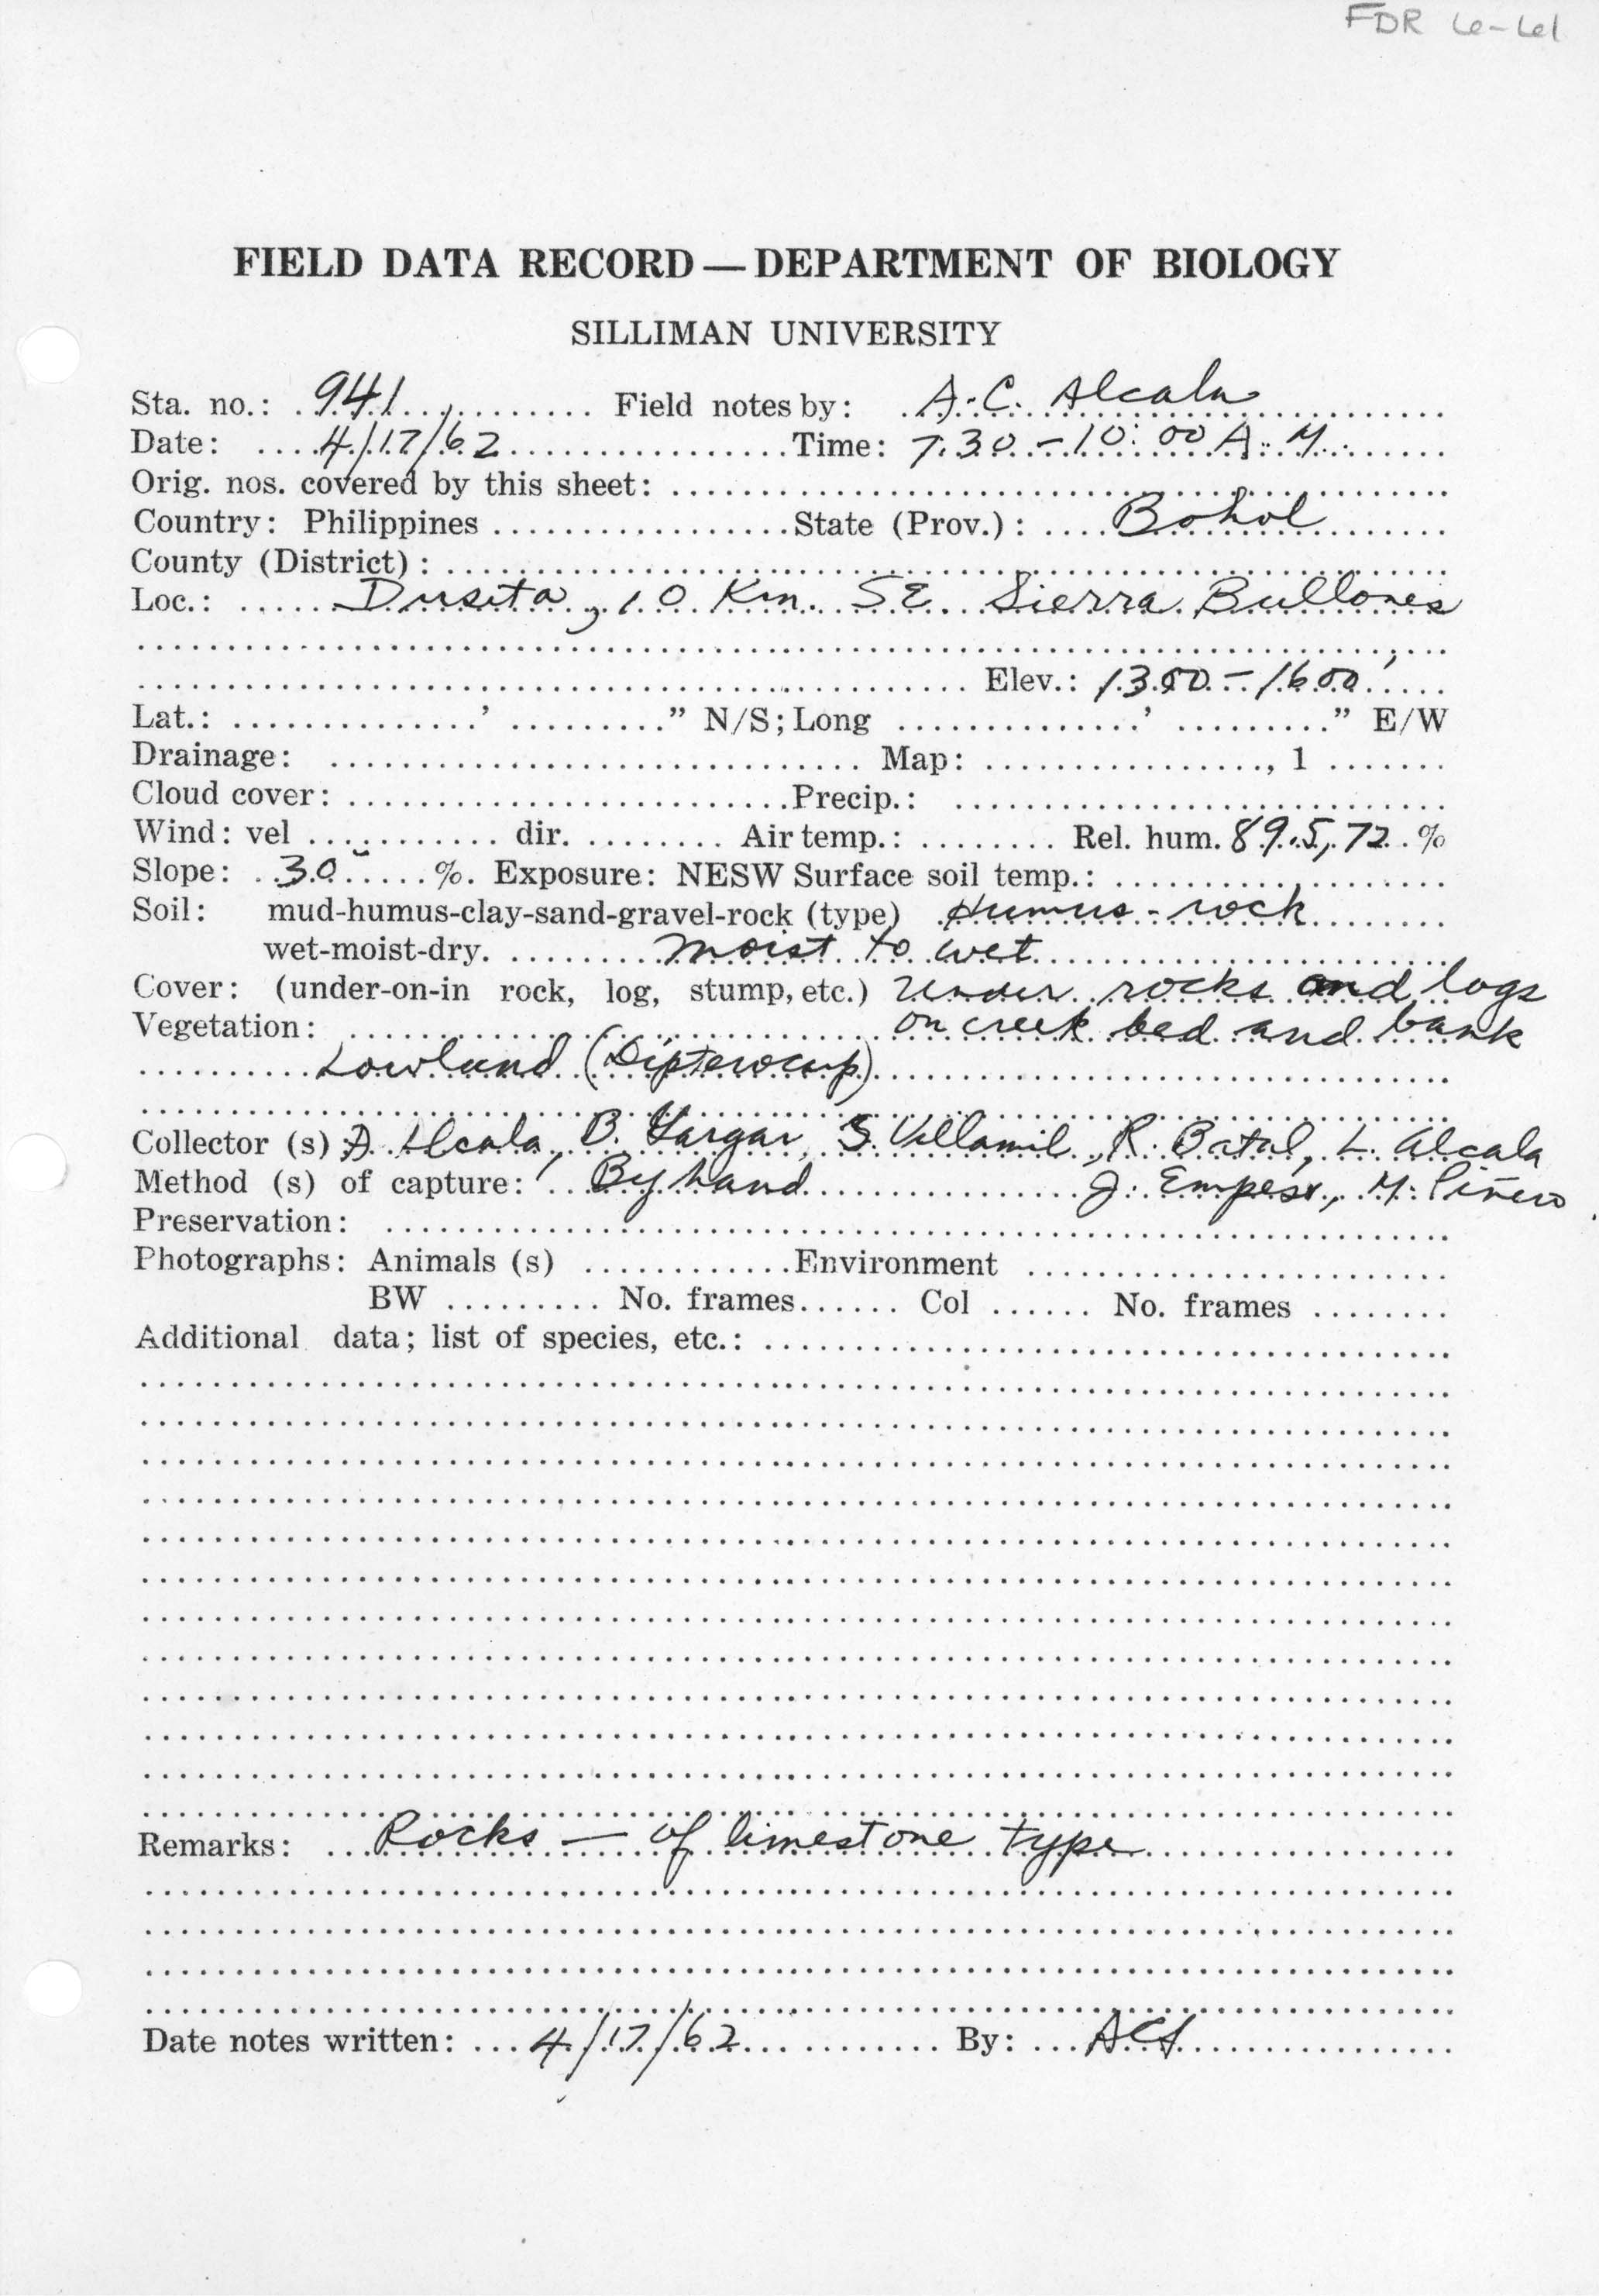 FDR 6-61
FIELD DATA RECORD — DEPARTMENT OF BIOLOGY
SILLIMAN UNIVERSITY
Sta. no.: 941 Field notes by: A. C. Alcala
Date: 4/17/62 Time: 7:30 - 10:00 A.M.
Orig. nos. covered by this sheet:
Country: Philippines State (Prov.): Bohol
County (District):
Loc.: Dusita, 10 Km. SE Sierra Bullones
Elev.: 1300 - 1600'
Lat.: ' " N/S; Long ' " E/W
Drainage: Map: , 1
Cloud cover: Precip.:
Wind: vel dir. Air temp.: Rel. hum. 89.5, 72 %
Slope: 30 %. Exposure: NESW Surface soil temp.:
Soil: mud-humus-clay-sand-gravel-rock (type) Humus - rock
wet-moist-dry. moist to wet
Cover: (under-on-in rock, log, stump, etc.) Under rocks and logs
Vegetation: on creek bed and bank
Lowland (Dipterocarp)
Collector (s) A. Alcala, B. Gargar, S. Villamil, R. Batal, L. Alcala
Method (s) of capture: By hand J. Empeso, M. Piñero
Preservation:
Photographs: Animals (s) Environment
BW No. frames Col No. frames
Additional data; list of species, etc.:
Remarks: Rocks — of limestone type
Date notes written: 4/17/62 By: ACA